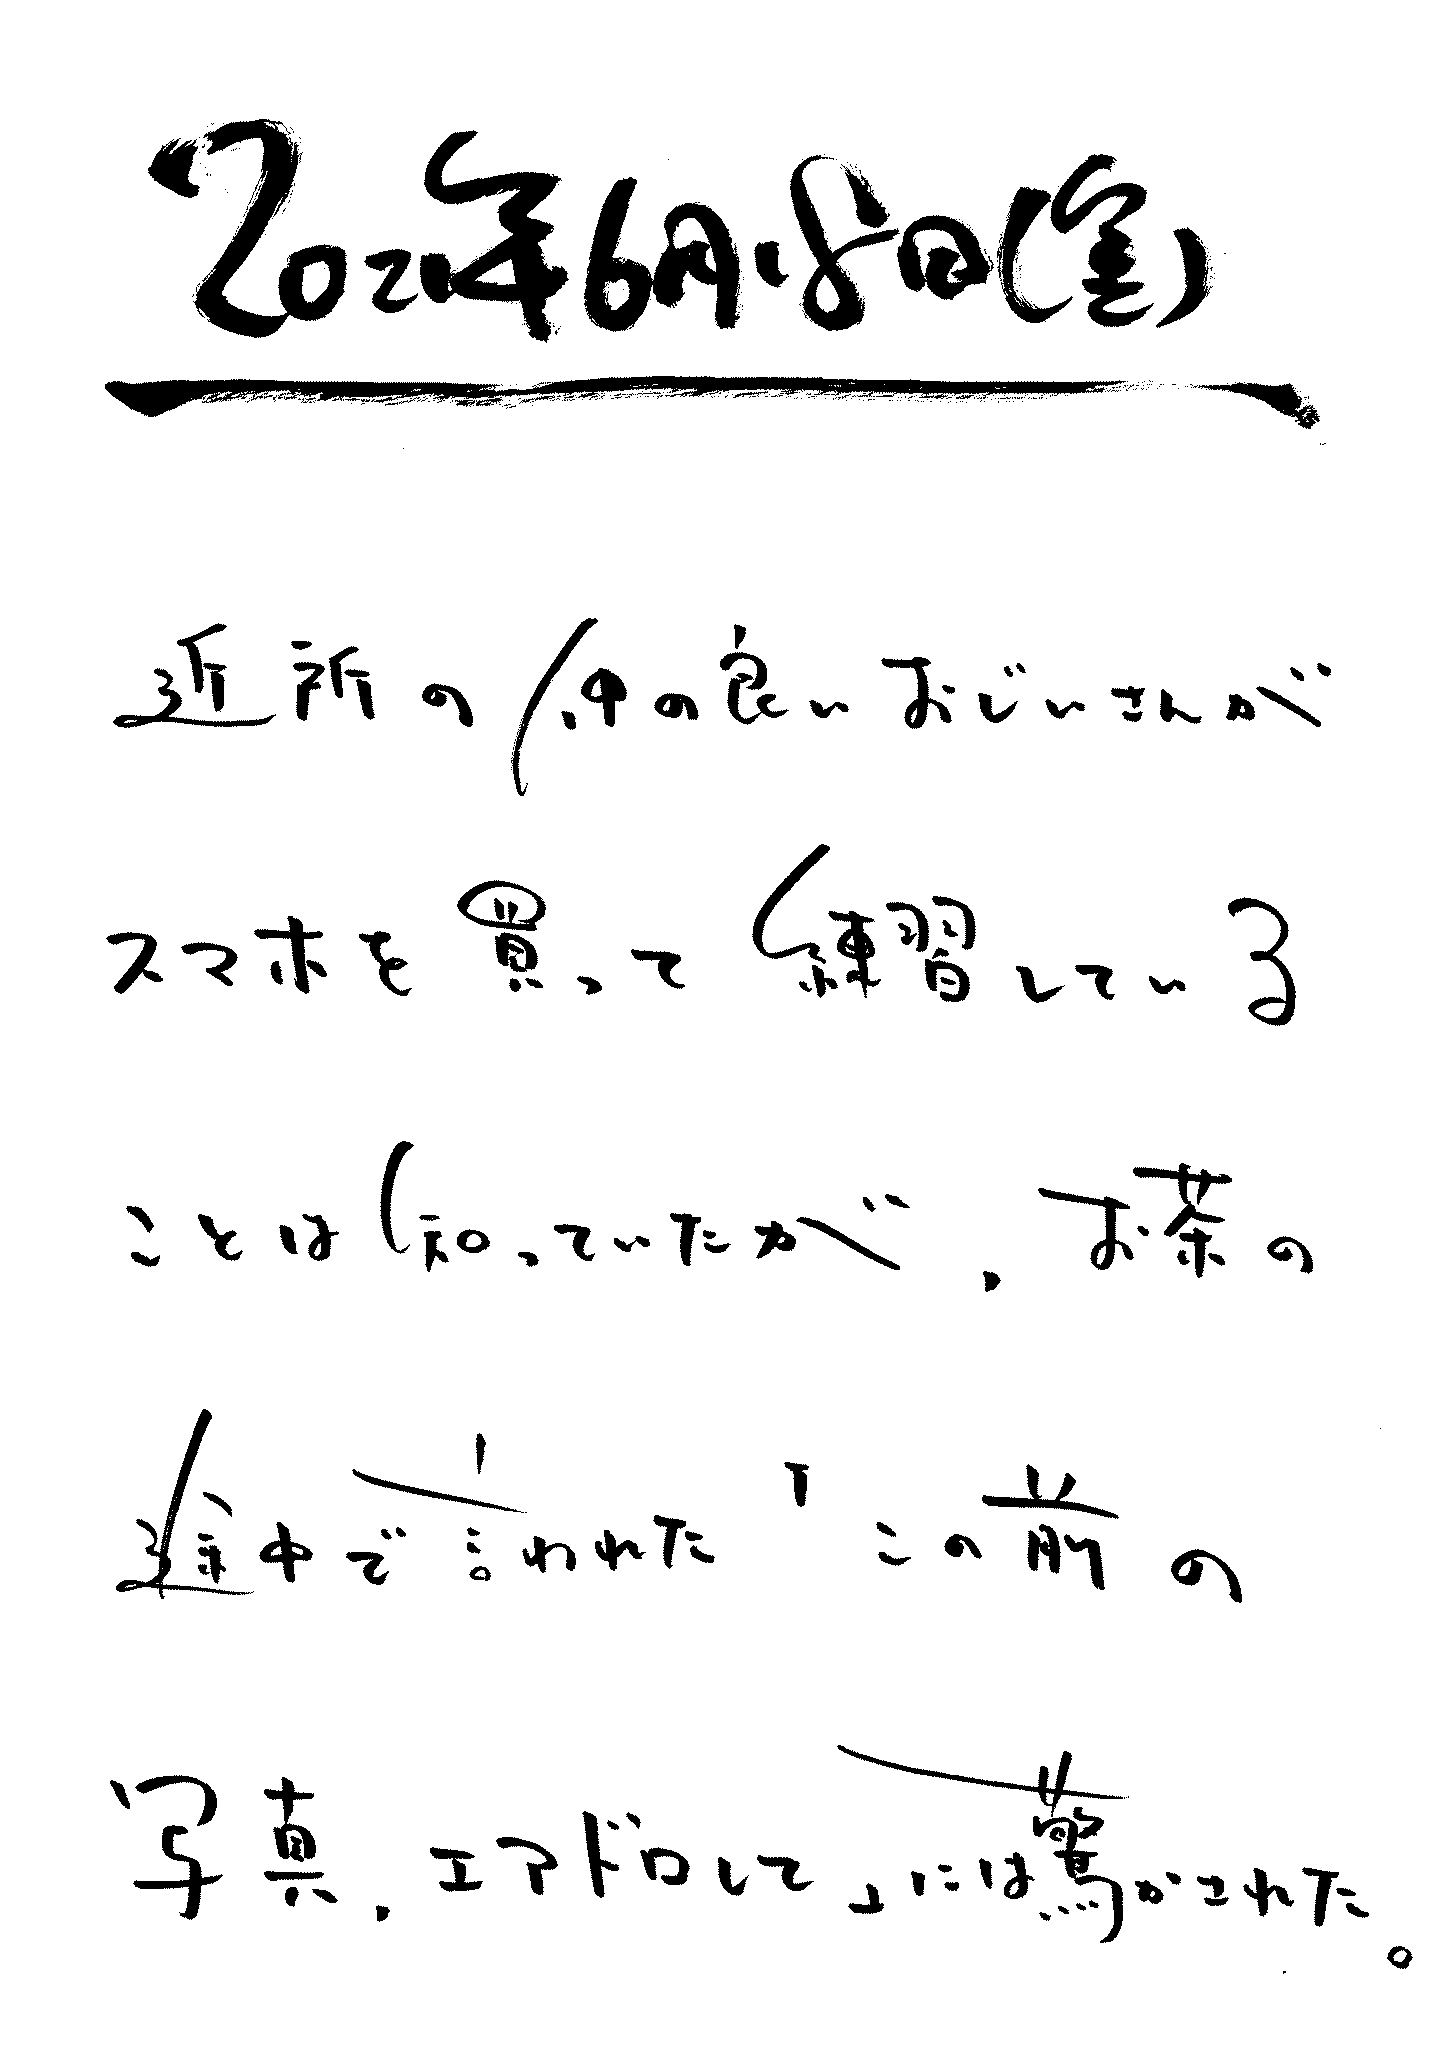 2021年6月18日(金)
近所の仲の良いおじいさんが
スマホを買って練習している
ことは知っていたが、お茶の
途中で言われた「この前の
写真、エアドロして」には驚かされた。